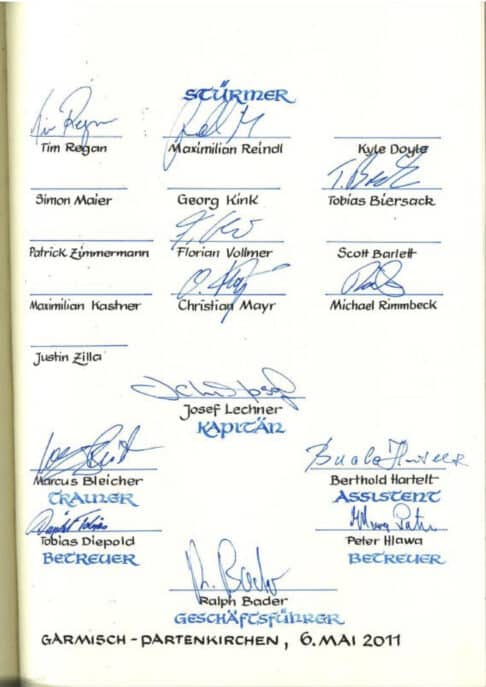 STÜRMER
Tim Regan Maximilian Reindl Kyle Doyle
Simon Maier Georg Kink Tobias Biersack
Patrick Zimmermann Florian Vollmer Scott Barlett
Maximilian Kastner Christian Mayr Michael Rimmbeck
Justin Zilla
Josef Lechner
KAPITÄN
Marcus Bleicher Berthold Hartelt
TRAINER ASSISTENT
Tobias Diepold Peter Hlawa
BETREUER BETREUER
Ralph Bader
GESCHÄFTSFÜHRER
GARMISCH-PARTENKIRCHEN, 6. MAI 2011